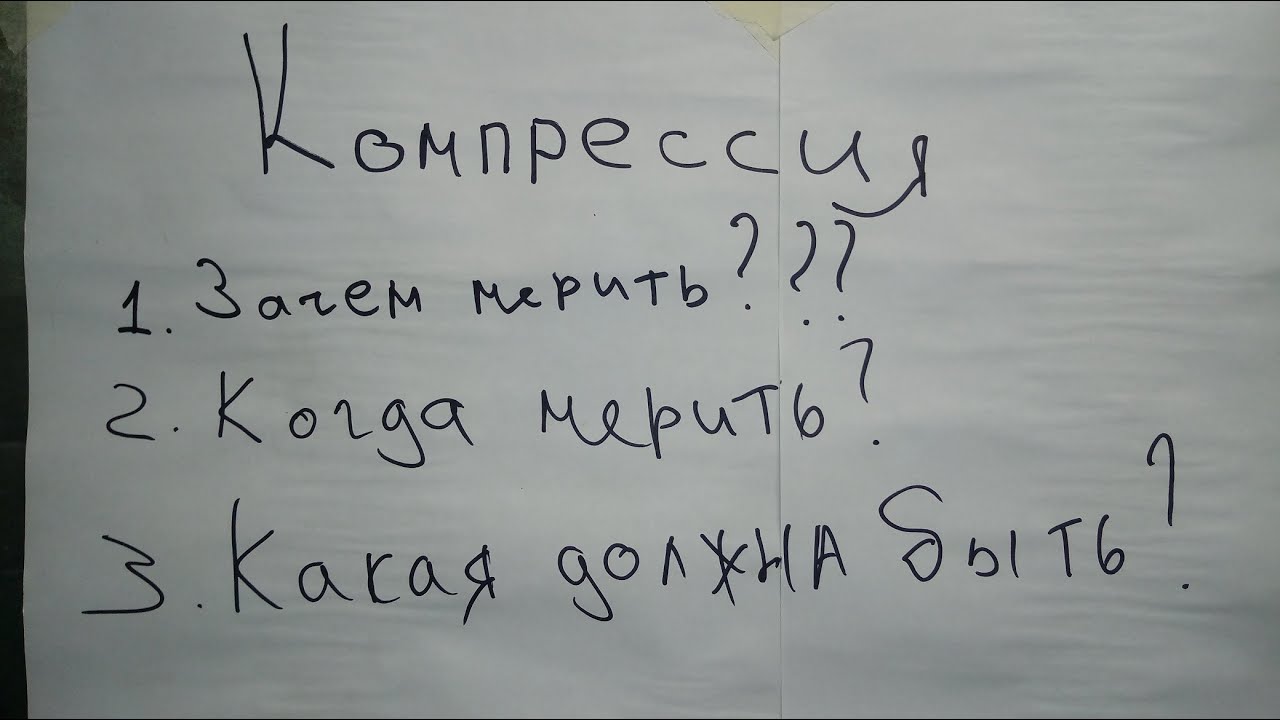 Компрессия
1. Зачем мерить???
2. Когда мерить?
3. Какая должна быть?